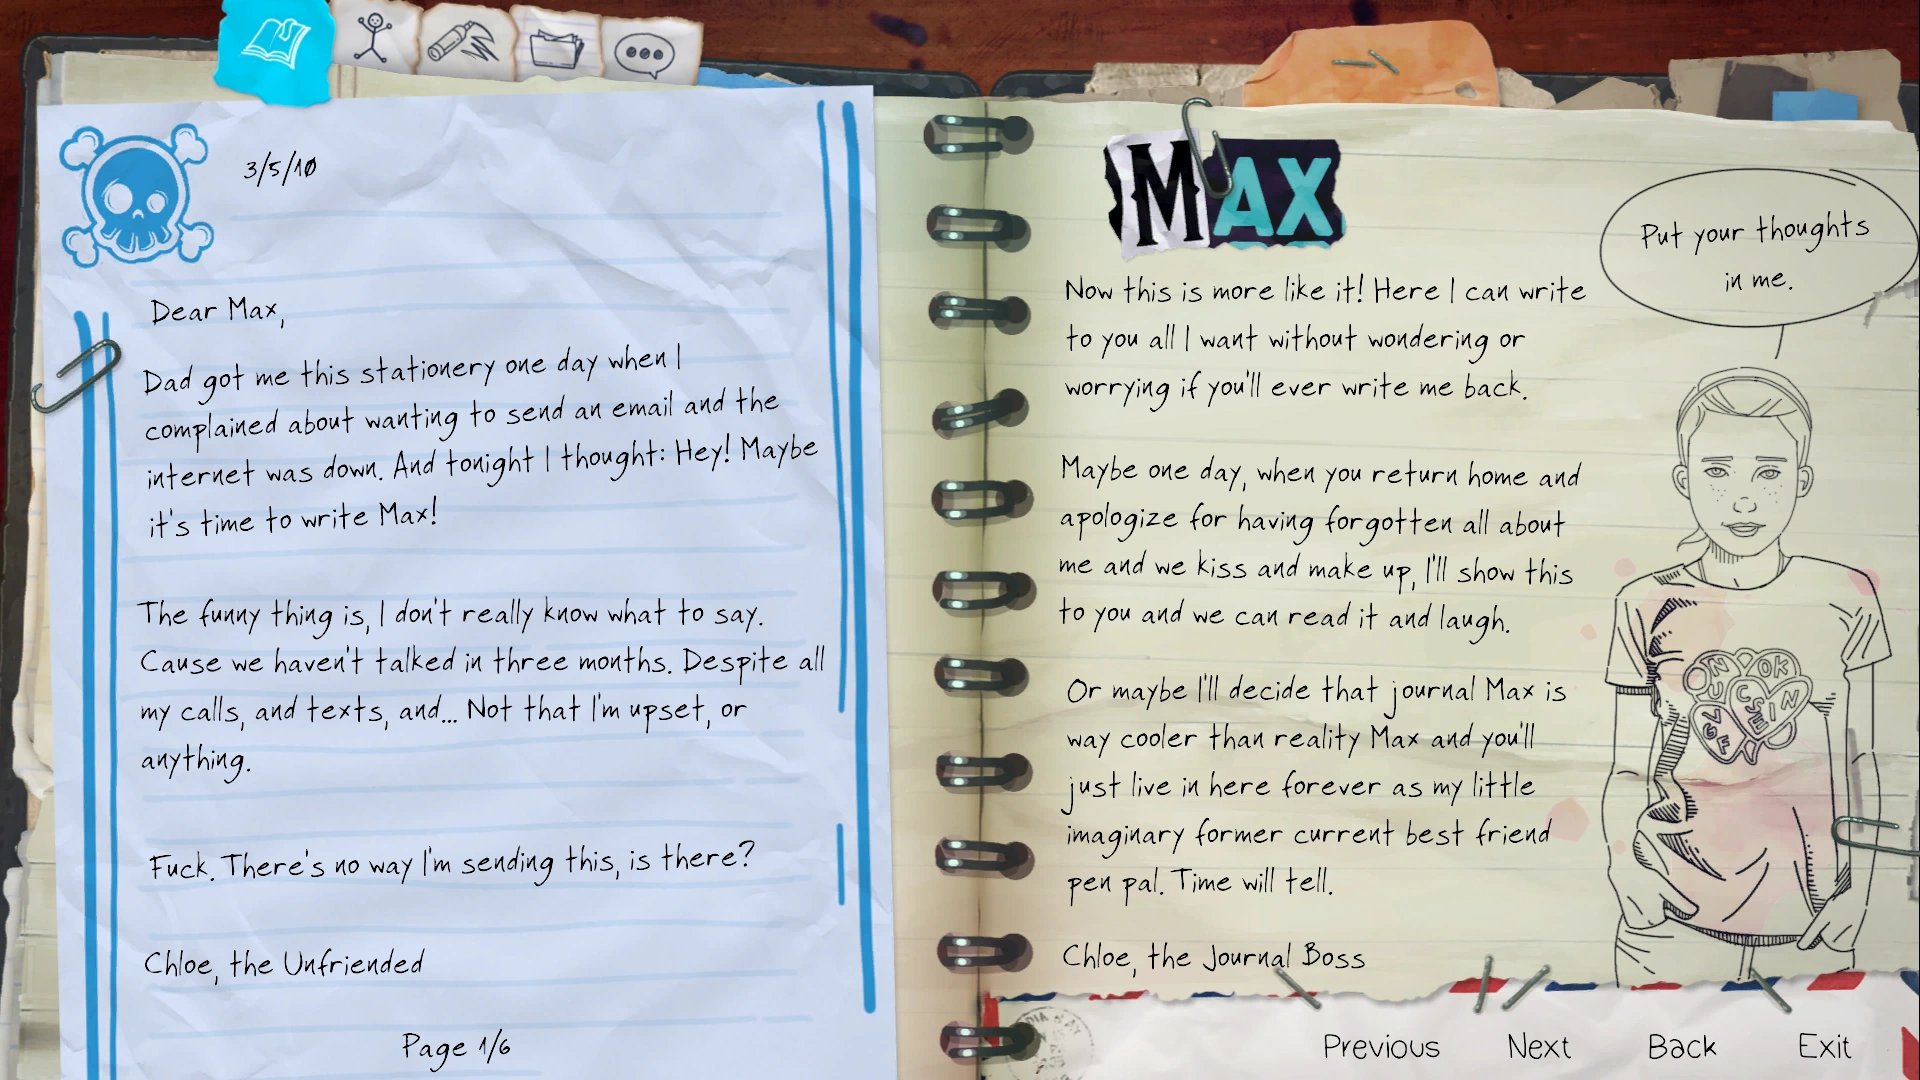 3/5/10
Dear Max,
Dad got me this stationery one day when I
complained about wanting to send an email and the
internet was down. And tonight I thought: Hey! Maybe
it's time to write Max!
The funny thing is, I don't really know what to say.
Cause we haven't talked in three months. Despite all
my calls, and texts, and... Not that I'm upset, or
anything.
Fuck. There's no way I'm sending this, is there?
Chloe, the Unfriended
Page 1/6
MAX
Now this is more like it! Here I can write
to you all I want without wondering or
worrying if you'll ever write me back.
Maybe one day, when you return home and
apologize for having forgotten all about
me and we kiss and make up, I'll show this
to you and we can read it and laugh.
Or maybe I'll decide that journal Max is
way cooler than reality Max and you'll
just live in here forever as my little
imaginary former current best friend
pen pal. Time will tell.
Chloe, the Journal Boss
Put your thoughts
in me.
Previous Next Back Exit